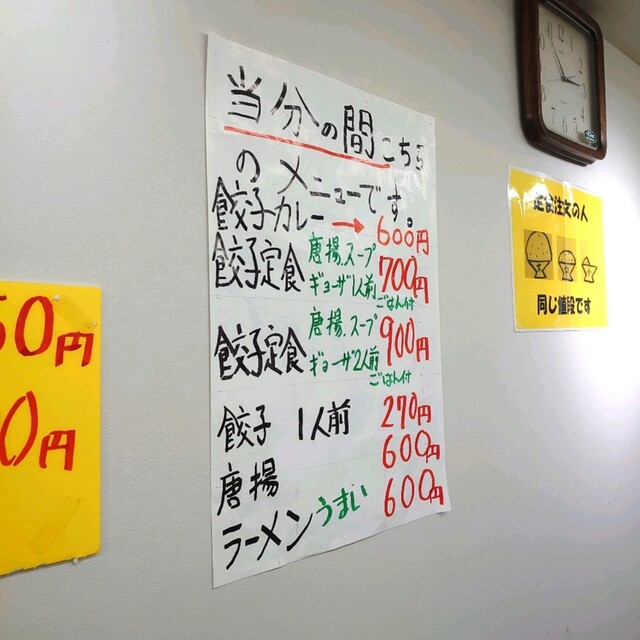 当分の間こちら
のメニューです。
餃子カレー → 600円
餃子定食 唐揚.スープ ギョーザ1人前 700円
ごはん付
餃子定食 唐揚.スープ ギョーザ2人前 900円
ごはん付
餃子 1人前 270円
唐揚 600円
ラーメン うまい 600円
50円
0円
定食注文の人
同じ値段です